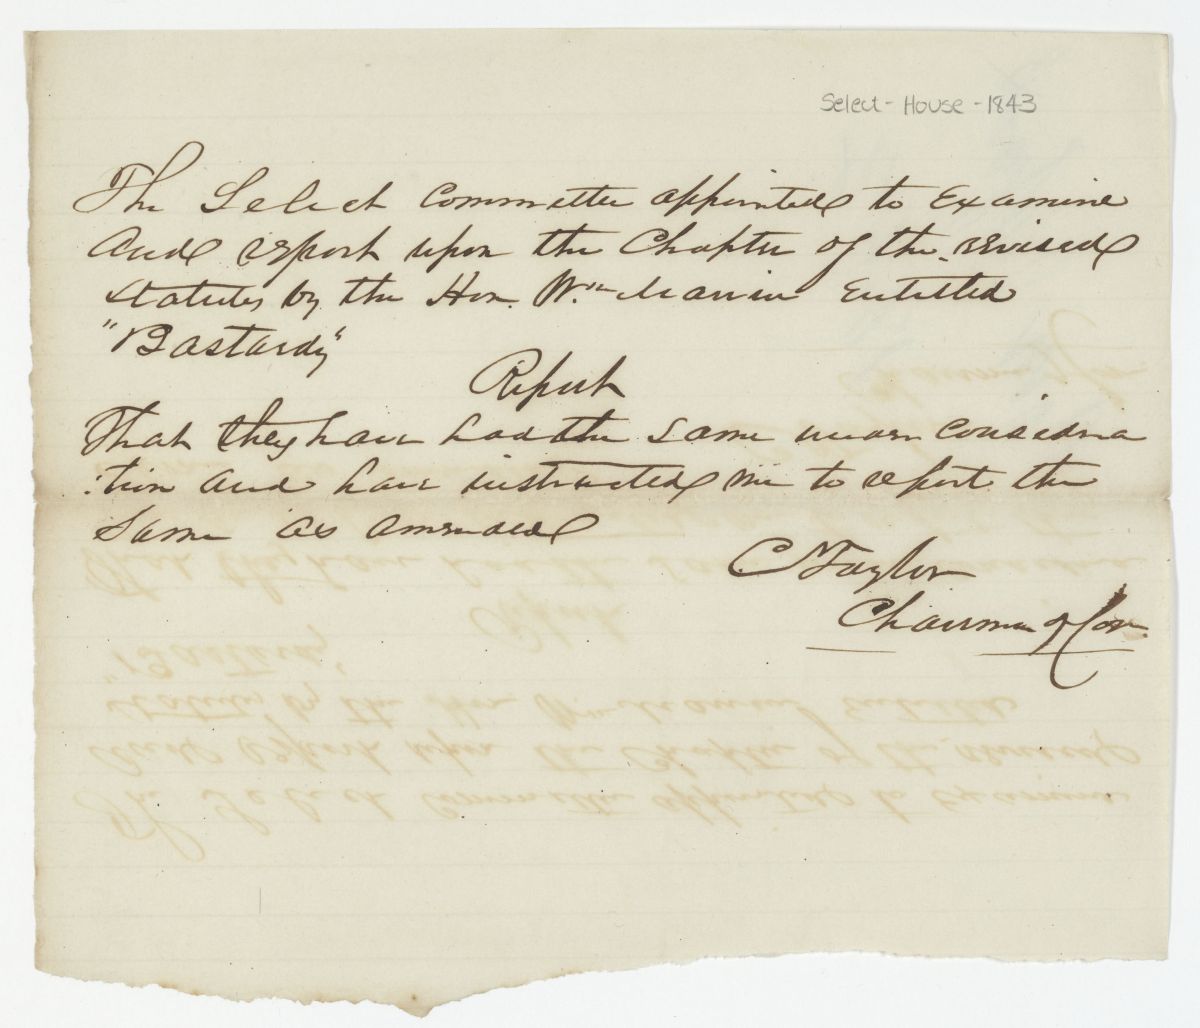 Select - House - 1843
The Select Committee appointed to Examine
and report upon the Chapter of the revised
statutes by the Hon. Wm Marvin Entitled
"Bastardy"
Report
That they have had the same under considera
:tion and have instructed me to report the
same as amended
C Taylor
Chairman of Com.